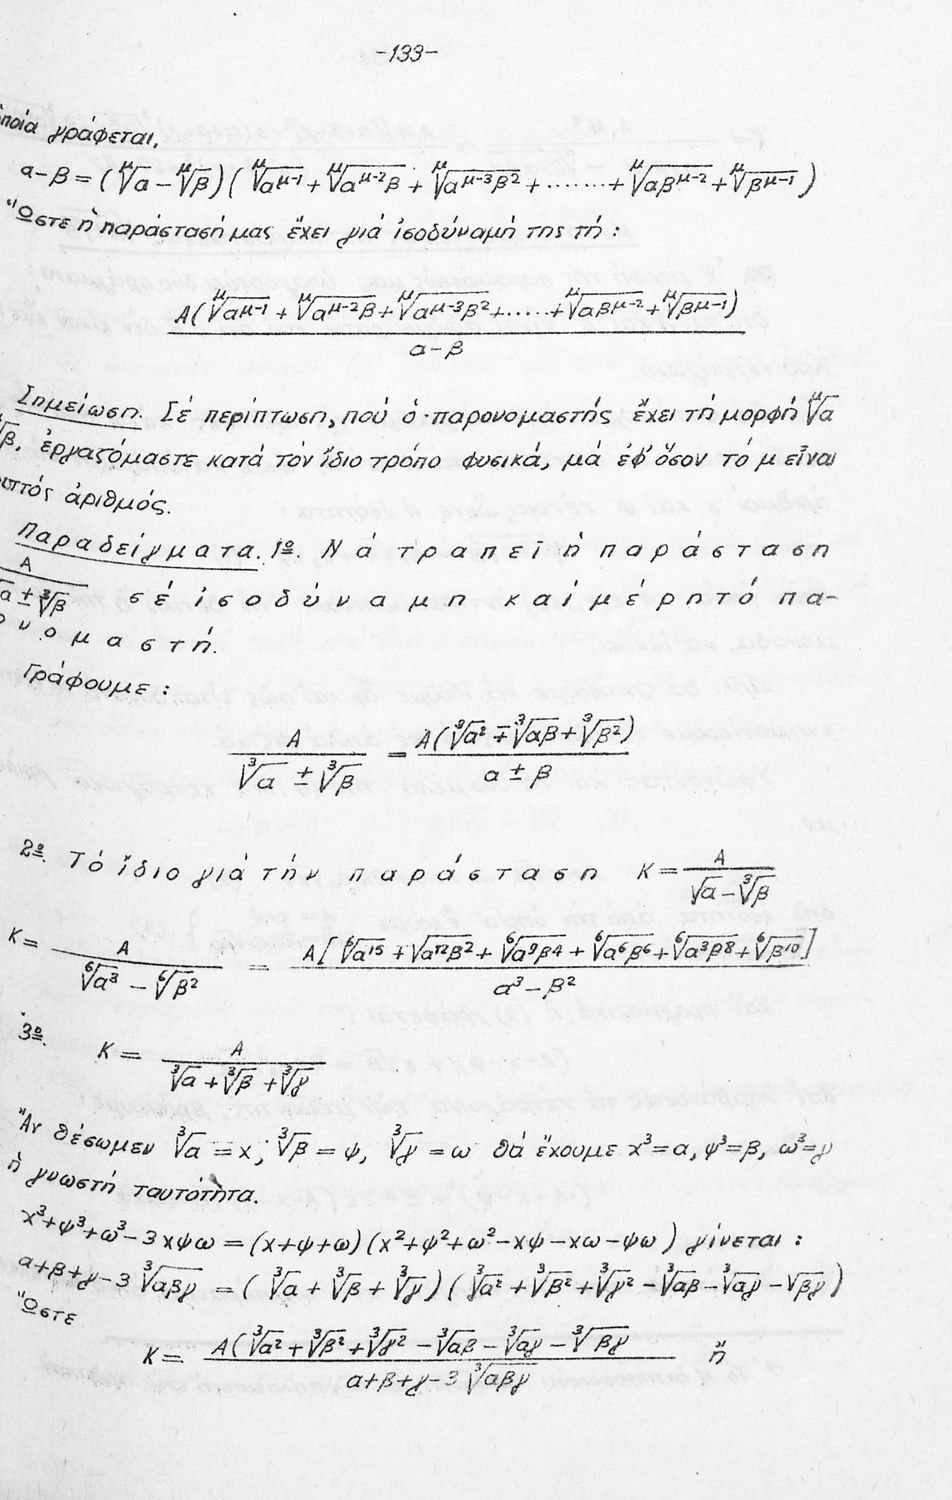 -133-
ὁποία γράφεται.
α-β = (ᵘ√α - ᵘ√β) (ᵘ√α^μ-1 + ᵘ√α^μ-2β + ᵘ√α^μ-3β² + ....... + ᵘ√αβ^μ-2 + ᵘ√β^μ-1)
Ὥστε ἡ παράστασή μας ἔχει γιά ἰσοδύναμή της τή :
A(ᵘ√α^μ-1 + ᵘ√α^μ-2β + ᵘ√α^μ-3β² + ..... + ᵘ√αβ^μ-2 + ᵘ√β^μ-1)
α-β
Σημείωση. Σέ περίπτωση, πού ὁ παρονομαστής ἔχει τή μορφή ᵘ√α
√β, ἐργαζόμαστε κατά τόν ἴδιο τρόπο φυσικά, μά ἐφ' ὅσον τό μ εἶναι
ριττός ἀριθμός.
Παραδείγματα. 1º. Νά τραπεῖ ἡ παράσταση
A
√α ± ³√β σέ ἰσοδύναμη καί μέ ρητό πα-
ονομαστή.
Γράφουμε :
A / (³√α ± ³√β) = A(³√α² ∓ ³√αβ + ³√β²) / (α ± β)
2º. Τό ἴδιο γιά τήν παράσταση K = A / (√α - ³√β)
K = A / (⁶√α³ - ⁶√β²) = A[⁶√α¹⁵ + √α¹²β² + ⁶√α⁹β⁴ + ⁶√α⁶β⁶ + ⁶√α³β⁸ + ⁶√β¹⁰] / (α³-β²)
3º. K = A / (³√α + ³√β + ³√γ)
Ἄν θέσωμεν ³√α = χ, ³√β = ψ, ³√γ = ω θά ἔχουμε χ³=α, ψ³=β, ω³=γ
ἡ γνωστή ταυτότητα.
χ³+ψ³+ω³-3χψω = (χ+ψ+ω) (χ²+ψ²+ω²-χψ-χω-ψω) γίνεται :
α+β+γ-3 ³√αβγ = (³√α + ³√β + ³√γ) (³√α² + ³√β² + ³√γ² - ³√αβ - ³√αγ - √βγ)
Ὥστε
K = A(³√α² + ³√β² + ³√γ² - ³√αβ - ³√αγ - ³√βγ / (α+β+γ-3 ³√αβγ) ἤ